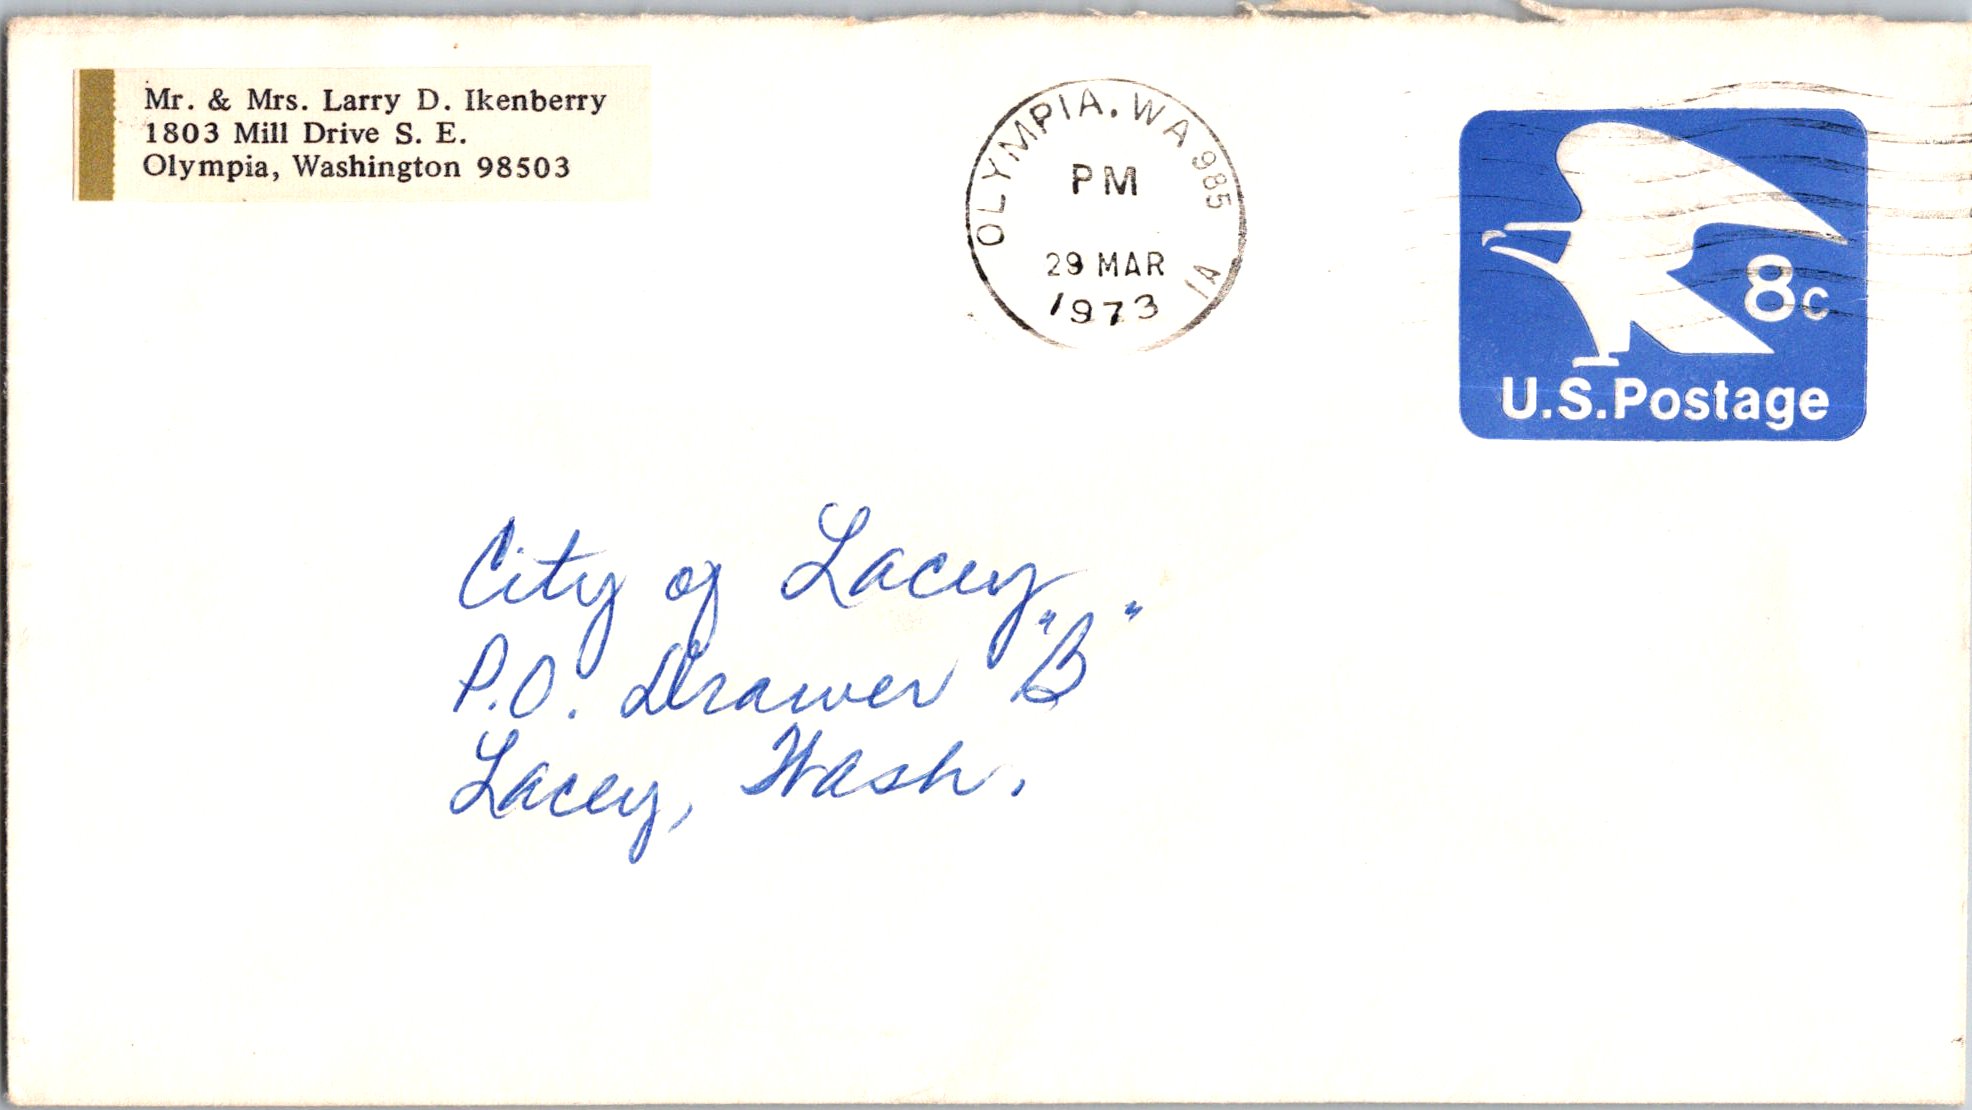 Mr. & Mrs. Larry D. Ikenberry
1803 Mill Drive S. E.
Olympia, Washington 98503
OLYMPIA, WA 985
PM
29 MAR
1973
1A
8c
U.S. Postage
City of Lacey
P.O. Drawer "B"
Lacey, Wash.